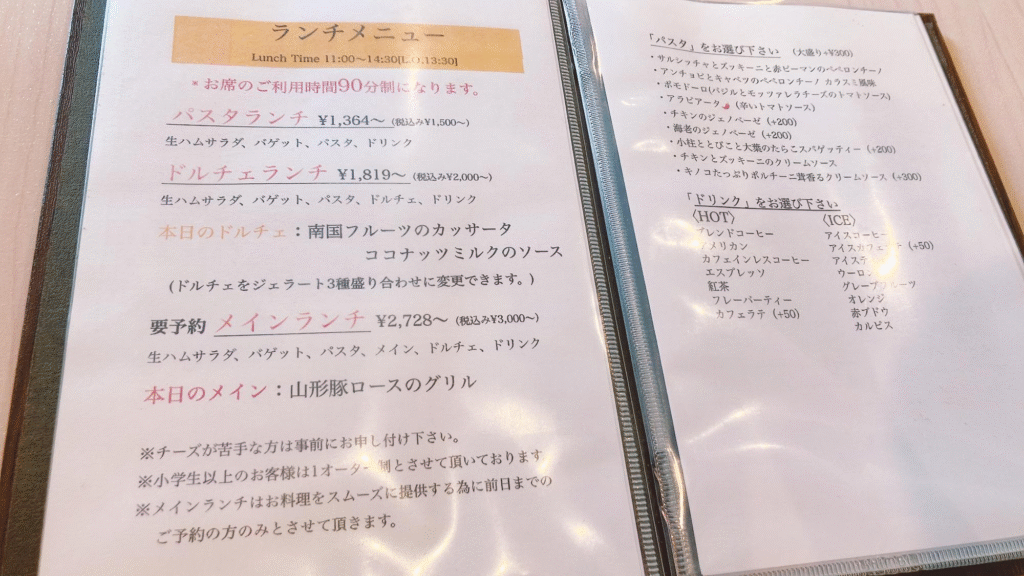 ランチメニュー
Lunch Time 11:00〜14:30[L.O.13:30]
*お席のご利用時間90分制になります。
パスタランチ ¥1,364〜(税込み¥1,500〜)
生ハムサラダ、バゲット、パスタ、ドリンク
ドルチェランチ ¥1,819〜(税込み¥2,000〜)
生ハムサラダ、バゲット、パスタ、ドルチェ、ドリンク
本日のドルチェ：南国フルーツのカッサータ
ココナッツミルクのソース
(ドルチェをジェラート3種盛り合わせに変更できます。)
要予約 メインランチ ¥2,728〜(税込み¥3,000〜)
生ハムサラダ、バゲット、パスタ、メイン、ドルチェ、ドリンク
本日のメイン：山形豚ロースのグリル
※チーズが苦手な方は事前にお申し付け下さい。
※小学生以上のお客様は1オーダー制とさせて頂いております
※メインランチはお料理をスムーズに提供する為に前日までの
ご予約の方のみとさせて頂きます。
「パスタ」をお選び下さい (大盛り+¥300)
・サルシッチャとズッキーニと赤ピーマンのペペロンチーノ
・アンチョビとキャベツのペペロンチーノ カラスミ風味
・ポモドーロ(バジルとモッツァレラチーズのトマトソース)
・アラビアータ🌶(辛いトマトソース)
・チキンのジェノベーゼ (+200)
・海老のジェノベーゼ (+200)
・小柱ととびこと大葉のたらこスパゲッティー (+200)
・チキンとズッキーニのクリームソース
・キノコたっぷりポルチーニ茸香るクリームソース (+300)
「ドリンク」をお選び下さい
〈HOT〉 〈ICE〉
ブレンドコーヒー アイスコーヒー
アメリカン アイスカフェラテ (+50)
カフェインレスコーヒー アイステ
エスプレッソ ウーロン
紅茶 グレープフルーツ
フレーバーティー オレンジ
カフェラテ (+50) 赤ブドウ
カルピス